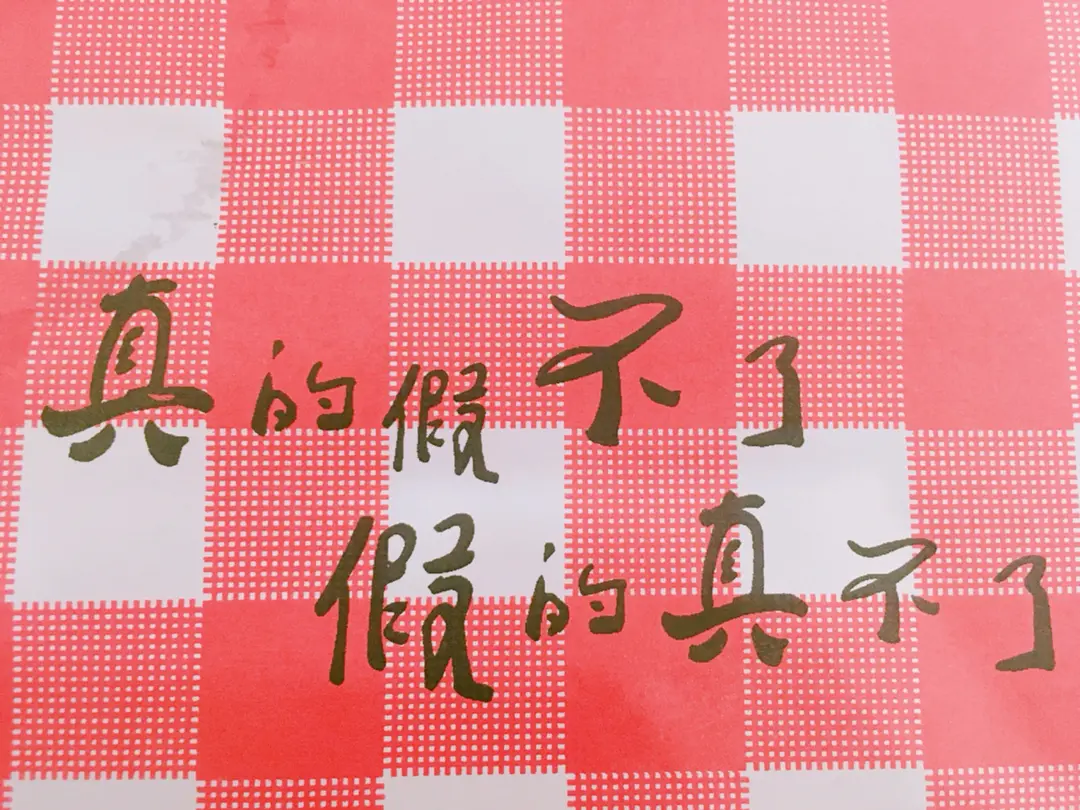 真的假不了
假的真不了